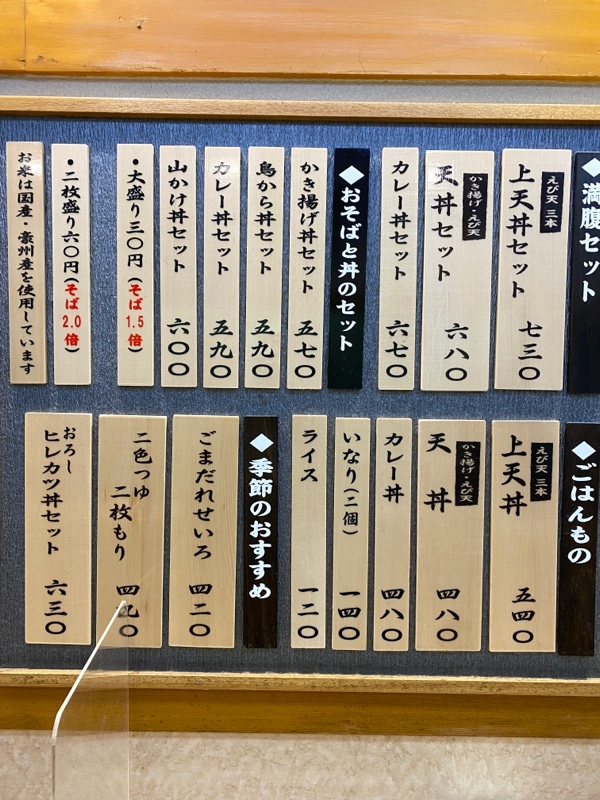 ◆満腹セット
えび天 三本
上天丼セット 七三〇
かき揚げ・えび天
天丼セット 六八〇
カレー丼セット 六七〇
◆おそばと丼のセット
かき揚げ丼セット 五七〇
鳥から丼セット 五九〇
カレー丼セット 五九〇
山かけ丼セット 六〇〇
・大盛り三〇円(そば1.5倍)
・二枚盛り六〇円(そば2.0倍)
お米は国産・豪州産を使用しています
◆ごはんもの
えび天 三本
上天丼 五四〇
かき揚げ・えび天
天丼 四八〇
カレー丼 四八〇
いなり(二個) 一四〇
ライス 一二〇
◆季節のおすすめ
ごまだれせいろ 四二〇
二色つゆ
二枚もり 四九〇
おろし
ヒレカツ丼セット 六三〇